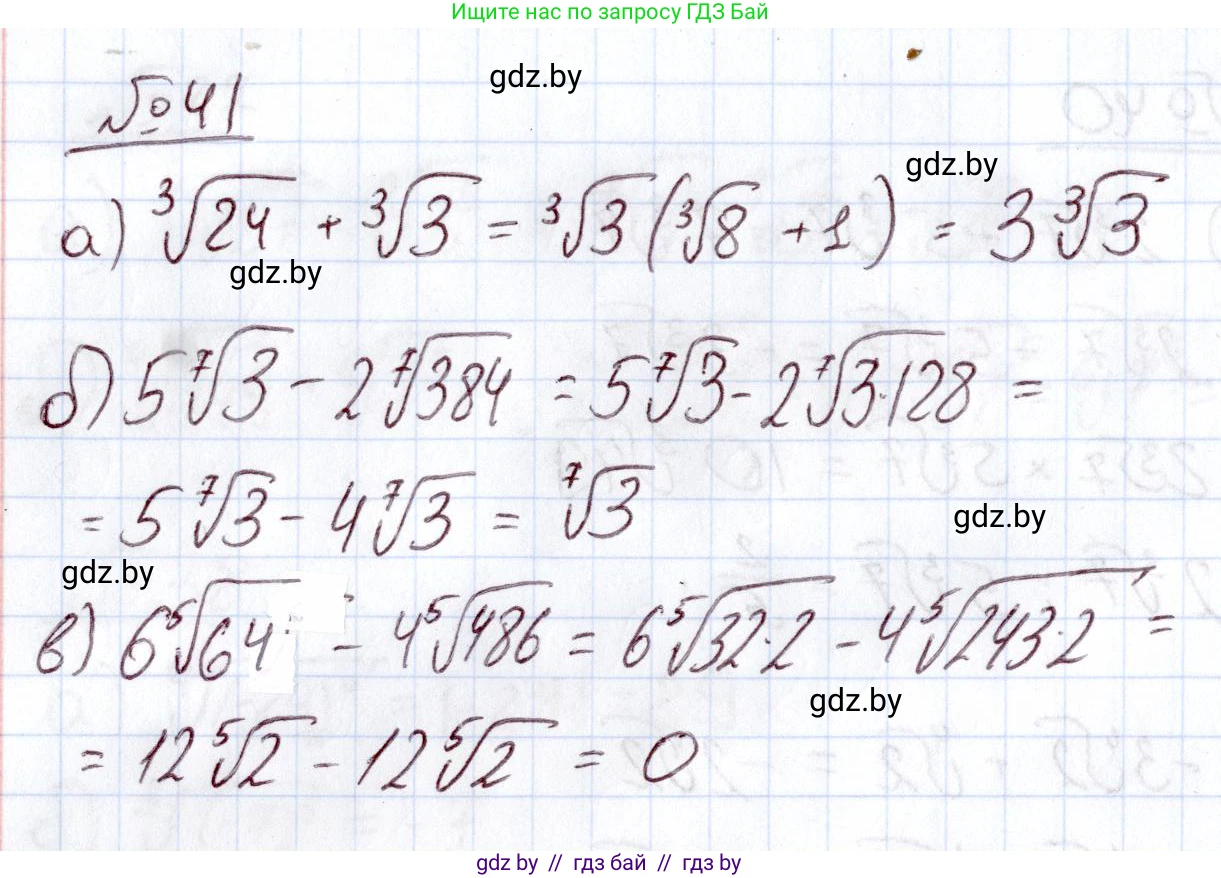 Ищите нас по запросу ГДЗ Бай
gdz.by
№ 41
gdz.by
а) ∛24 + ∛3 = ∛3 (∛8 + 1) = 3 ∛3
gdz.by
б) 5 ⁷√3 - 2 ⁷√384 = 5 ⁷√3 - 2 ⁷√3·128 =
= 5 ⁷√3 - 4 ⁷√3 = ⁷√3
gdz.by
gdz.by
в) 6 ⁵√64 - 4 ⁵√486 = 6 ⁵√32·2 - 4 ⁵√243·2 =
gdz.by
= 12 ⁵√2 - 12 ⁵√2 = 0
gdz by // гдз бай // гдз by